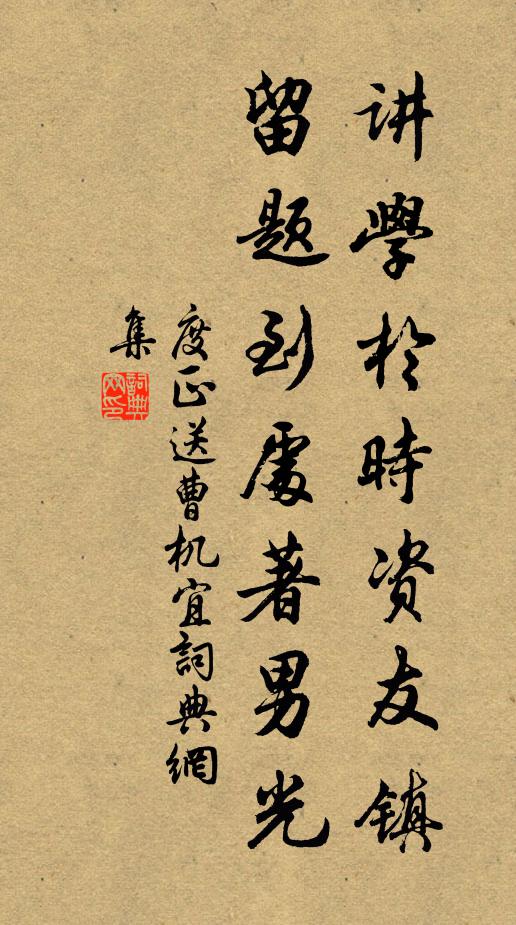 讲學於時资友镇
留题到處著男光
度正送曹机宜詞典網
集
詞典網印